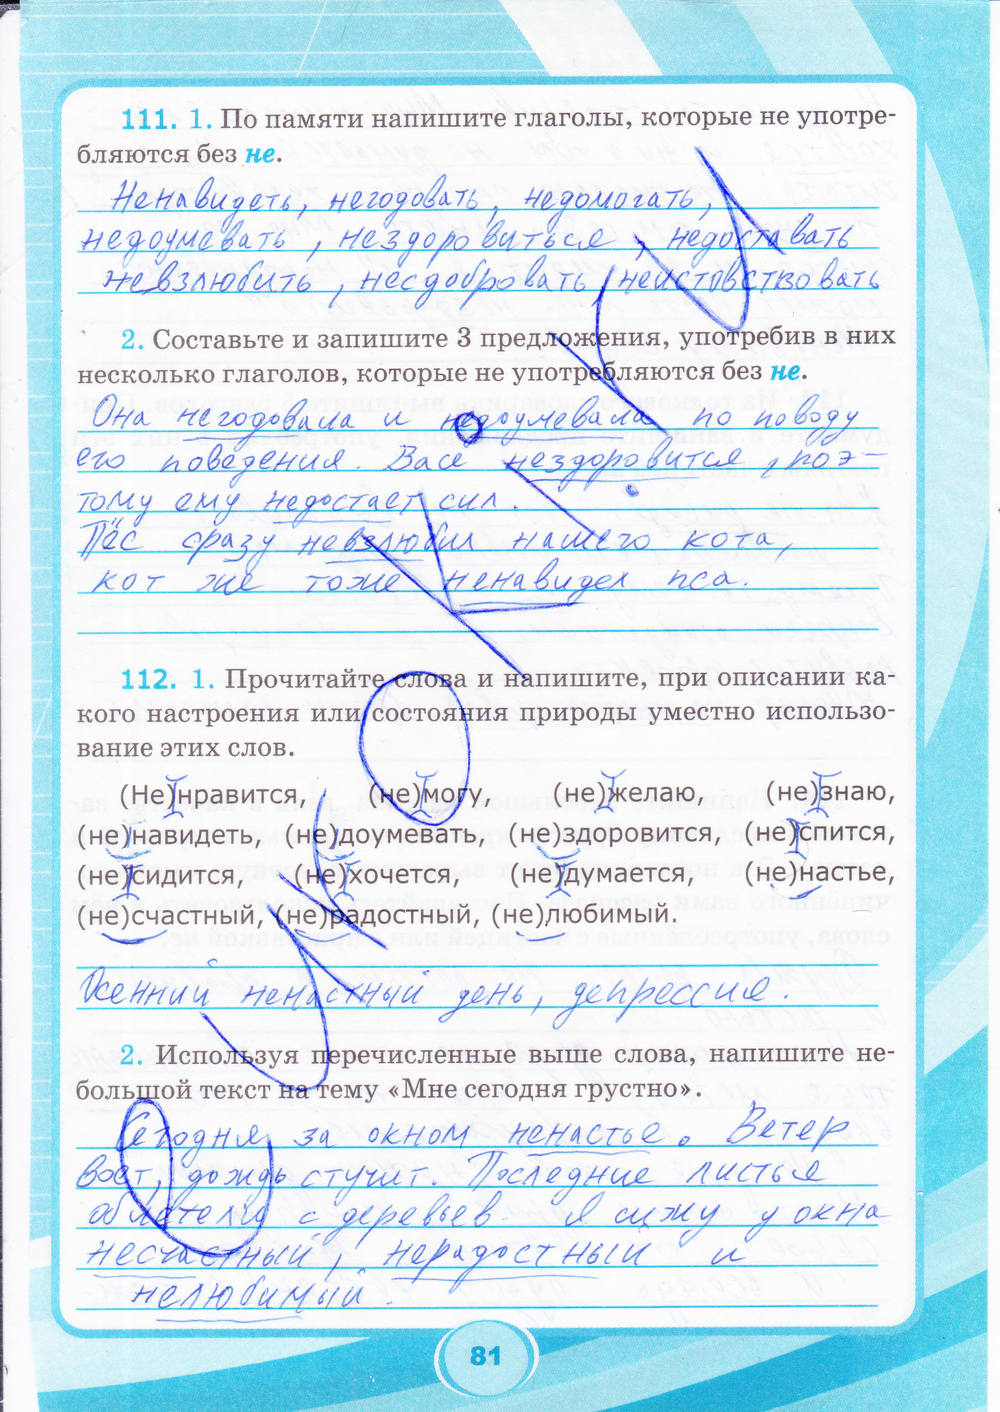 111. 1. По памяти напишите глаголы, которые не употре-
бляются без не.
Ненавидеть, негодовать, недомогать,
недоумевать, нездоровиться, недоставать
невзлюбить, несдобровать, неистовствовать
2. Составьте и запишите 3 предложения, употребив в них
несколько глаголов, которые не употребляются без не.
Она негодовала и недоумевала по поводу
его поведения. Васе нездоровится, поэ-
тому ему недостает сил.
Пёс сразу невзлюбил нашего кота,
кот же тоже ненавидел пса.
112. 1. Прочитайте слова и напишите, при описании ка-
кого настроения или состояния природы уместно использо-
вание этих слов.
(Не)нравится, (не)могу, (не)желаю, (не)знаю,
(не)навидеть, (не)доумевать, (не)здоровится, (не)спится,
(не)сидится, (не)хочется, (не)думается, (не)настье,
(не)счастный, (не)радостный, (не)любимый.
Осенний ненастный день, депрессия.
2. Используя перечисленные выше слова, напишите не-
большой текст на тему «Мне сегодня грустно».
Сегодня за окном ненастье. Ветер
воет, дождь стучит. Последние листья
облетели с деревьев. Я сижу у окна
несчастный, нерадостный и
нелюбимый.
81